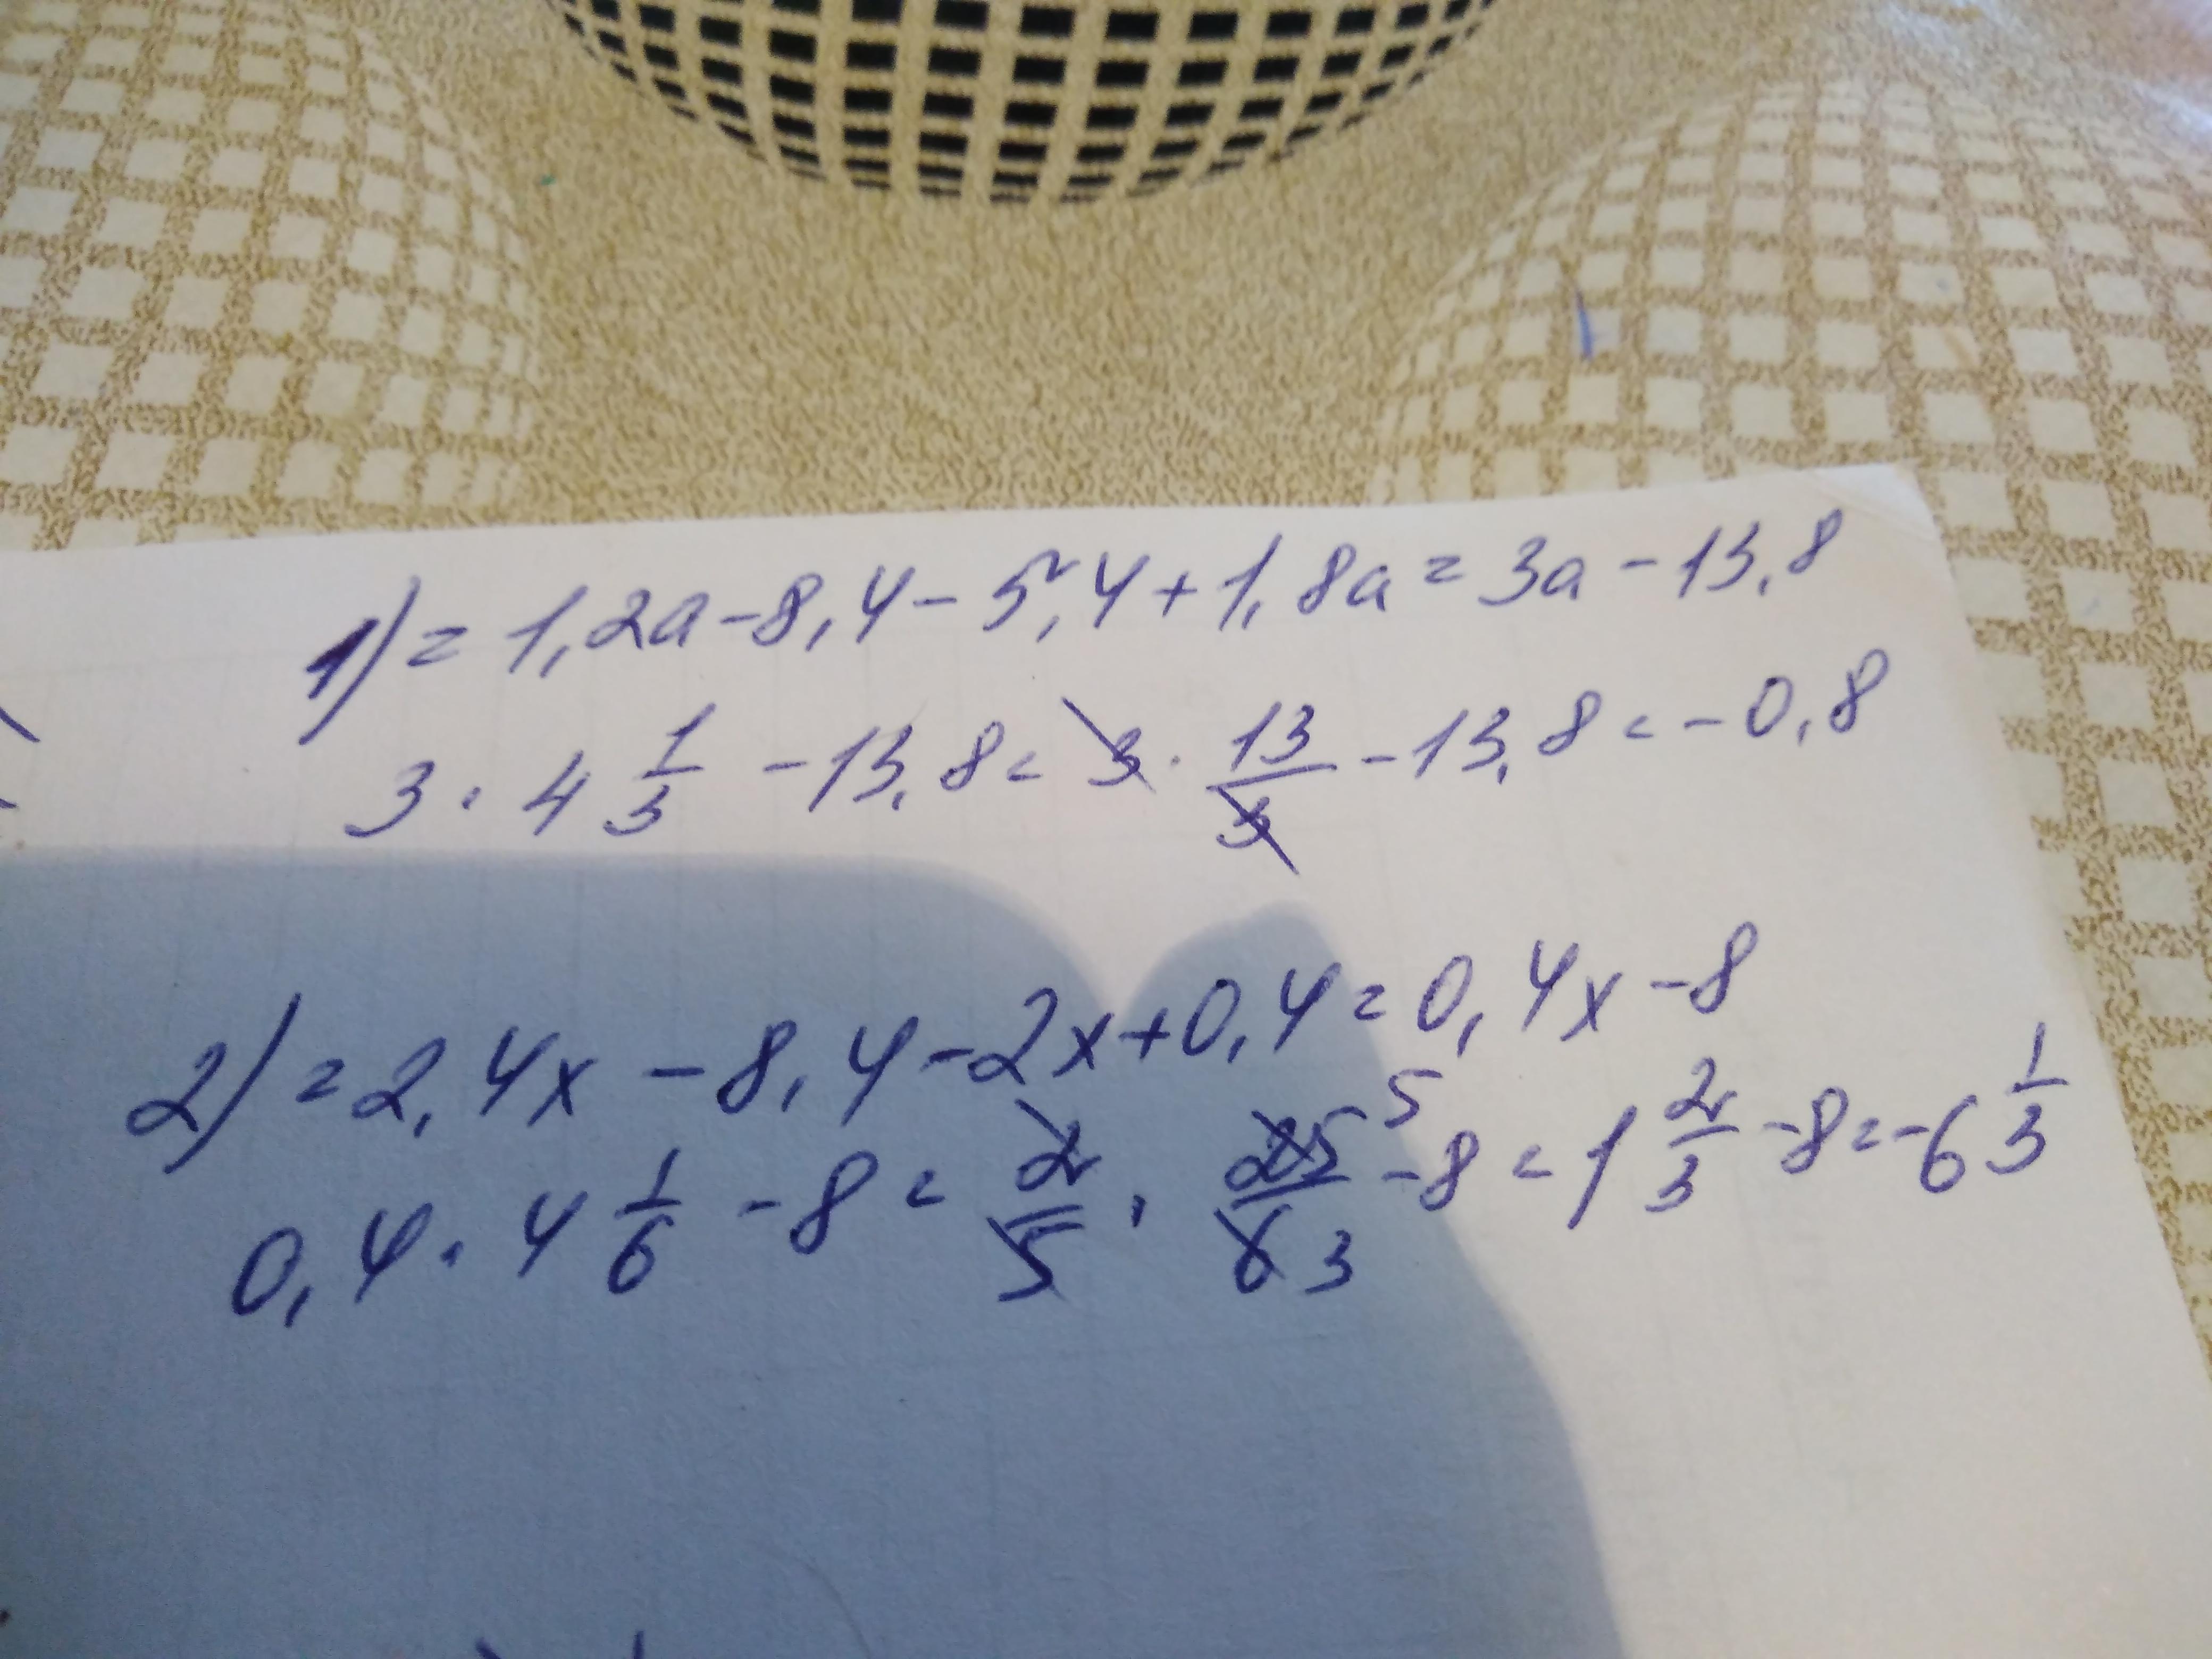 1) = 1,2a - 8,4 - 5,4 + 1,8a = 3a - 13,8
3 · 4 1/3 - 13,8 = 3 · 13/3 - 13,8 = - 0,8
2) = 2,4x - 8,4 - 2x + 0,4 = 0,4x - 8
0,4 · 4 1/6 - 8 = 2/5 · 25 5/6 3 - 8 = 1 2/3 - 8 = - 6 1/3